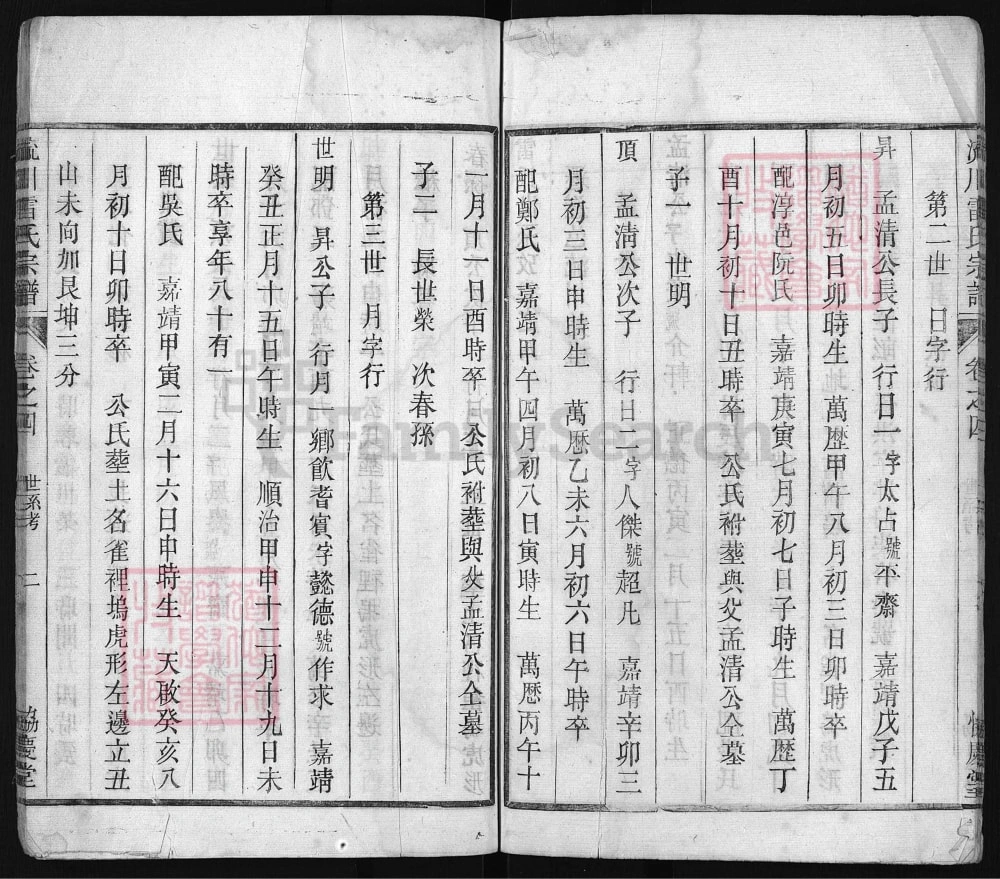 第二世 日字行
昇 孟清公長子行日一字太占號平齋 嘉靖戊子五
月初五日卯時生 萬歷甲午八月初三日卯時卒
配淳邑阮氏 嘉靖庚寅七月初七日子時生 萬歷丁
酉十月初十日丑時卒 公氏袝塟與父孟清公仝墓
子一 世明
頂 孟清公次子 行日二字人傑號超凡 嘉靖辛卯三
月初三日申時生 萬歷乙未六月初六日午時卒
配鄭氏攷 嘉靖甲午四月初八日寅時生 萬歷丙午十
一月十一日酉時卒 公氏袝塟與父孟清公仝墓
子二 長世榮 次春孫
第三世 月字行
世明 昇公子 行月一鄉飲耆賓字懿德號作求 嘉靖
癸丑正月十五日午時生 順治甲申十二月十九日未
時卒享年八十有一
配吳氏 嘉靖甲寅二月十六日申時生 天啟癸亥八
月初十日卯時卒 公氏塟土名雀裡塢虎形左邊立丑
山未向加艮坤三分
川雷氏宗譜 卷之四 世系考 二 協慶堂
FamilySearch